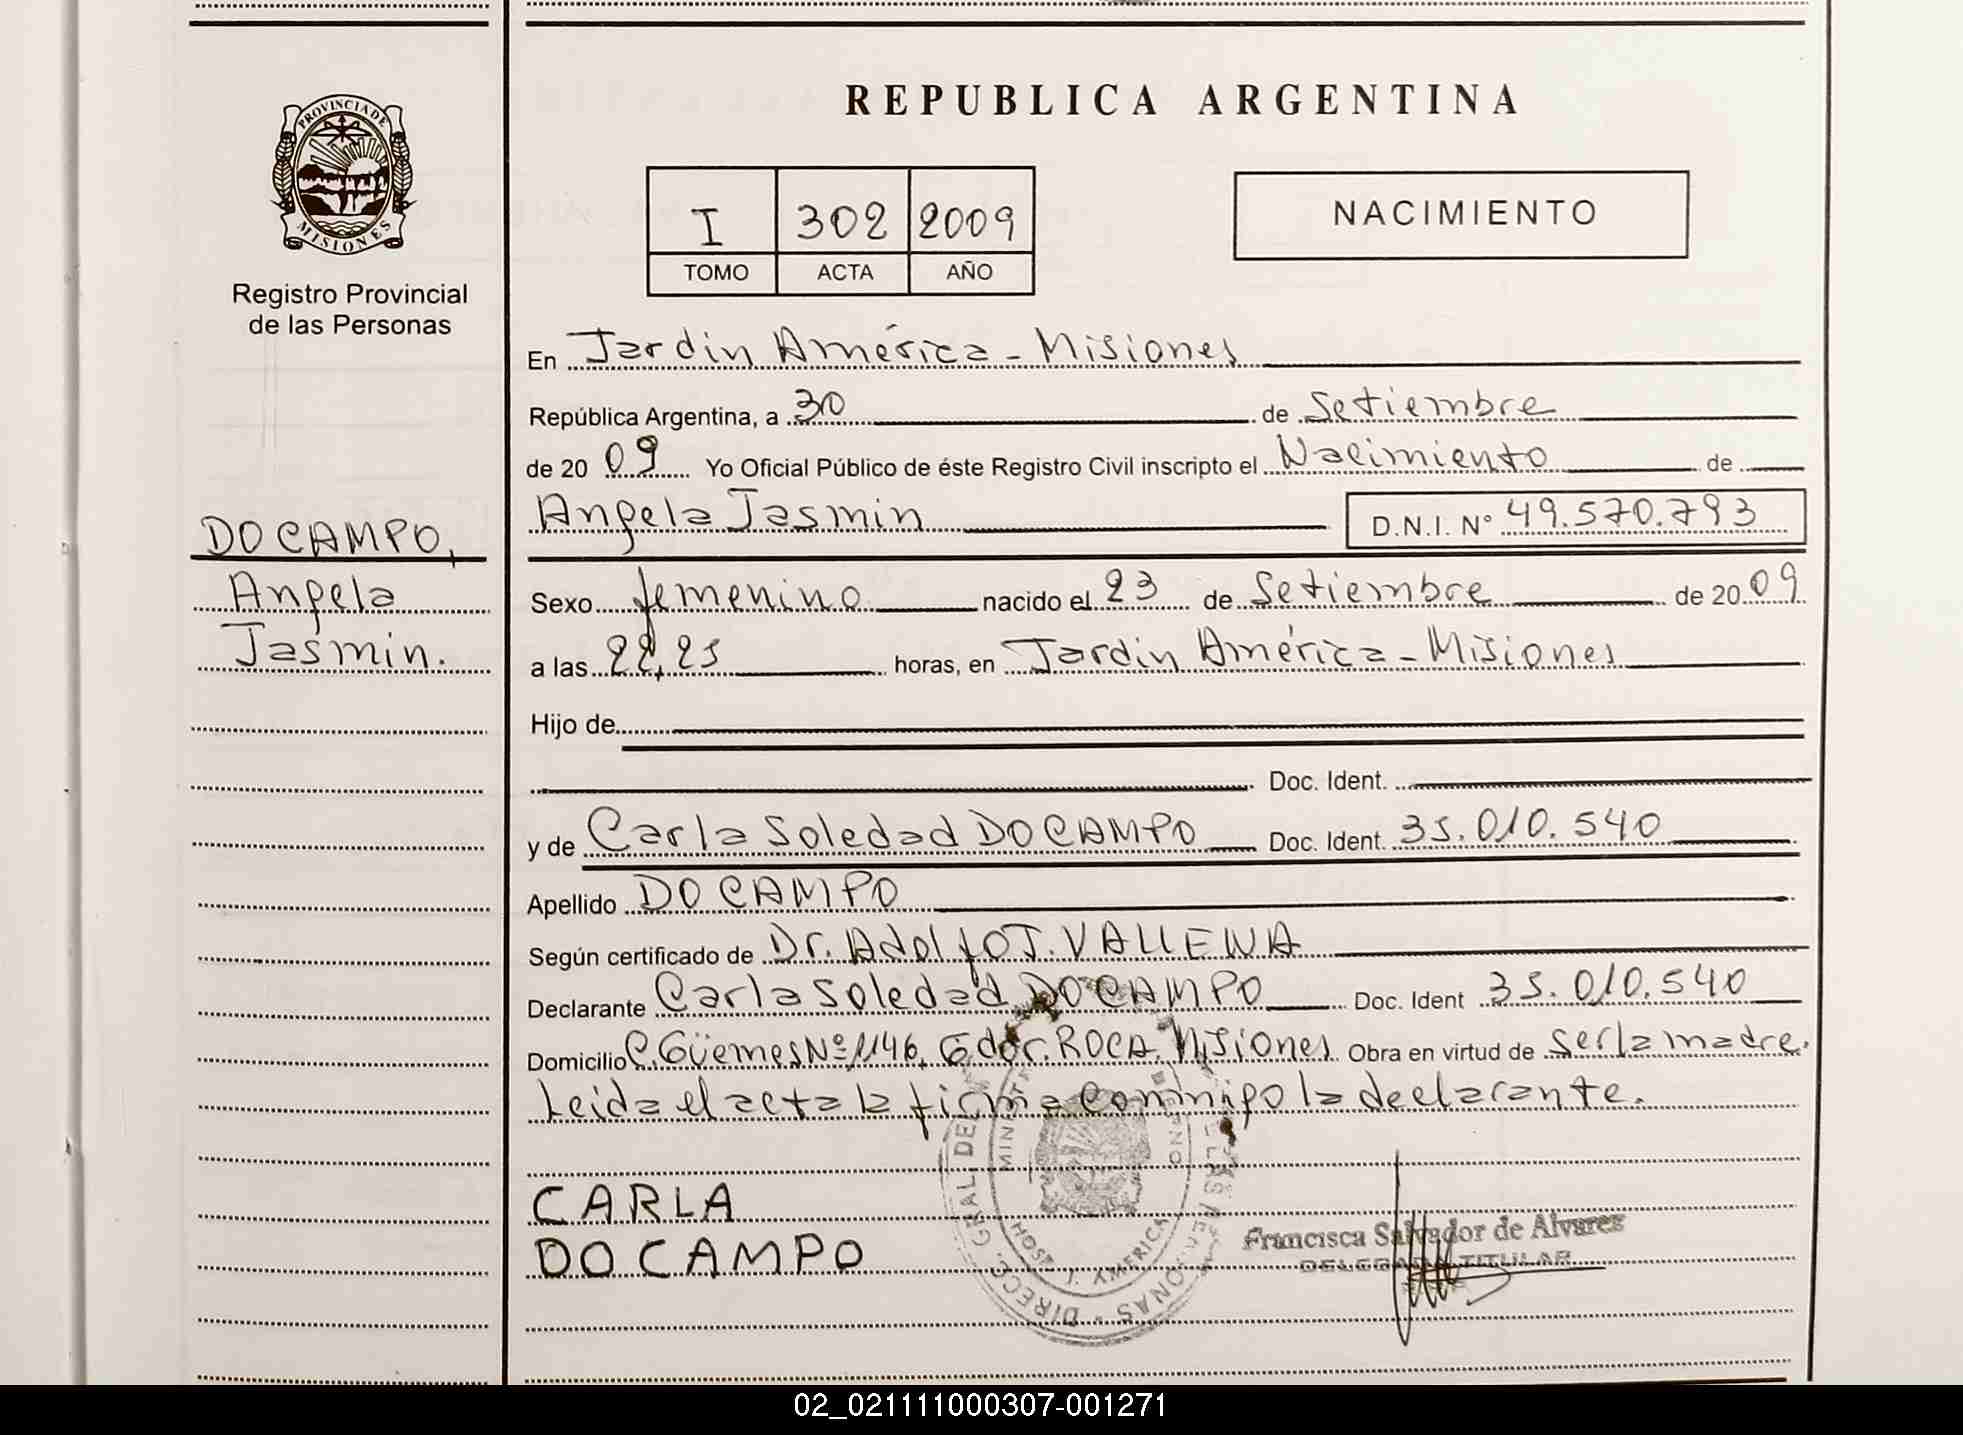 REPUBLICA ARGENTINA
PROVINCIA DE
MISIONES
Registro Provincial
de las Personas
I 302 2009
TOMO ACTA AÑO
NACIMIENTO
En Jardin América - Misiones
República Argentina, a 30 de Setiembre
de 20 09 Yo Oficial Público de éste Registro Civil inscripto el Nacimiento de
Angela Jasmin D.N.I. N° 49.570.793
DO CAMPO,
Angela
Jasmin.
Sexo femenino nacido el 23 de Setiembre de 20 09
a las 22,25 horas, en Jardin América - Misiones
Hijo de
Doc. Ident.
y de Carla Soledad DO CAMPO Doc. Ident. 35.010.540
Apellido DO CAMPO
Según certificado de Dr. Adolfo J.
Declarante Carla Soledad DO CAMPO Doc. Ident 35.010.540
Domicilio C. Güemes Nº 1146, Gdor. ROCA, Misiones Obra en virtud de ser la madre.
Leida el acta la firma conmigo la declarante.
CARLA
DO CAMPO
DIRECC. GRAL. DEL
HOSP. J. AMERICA
Francisca Salvador de Alvarez
DELEGADA TITULAR
02_021111000307-001271